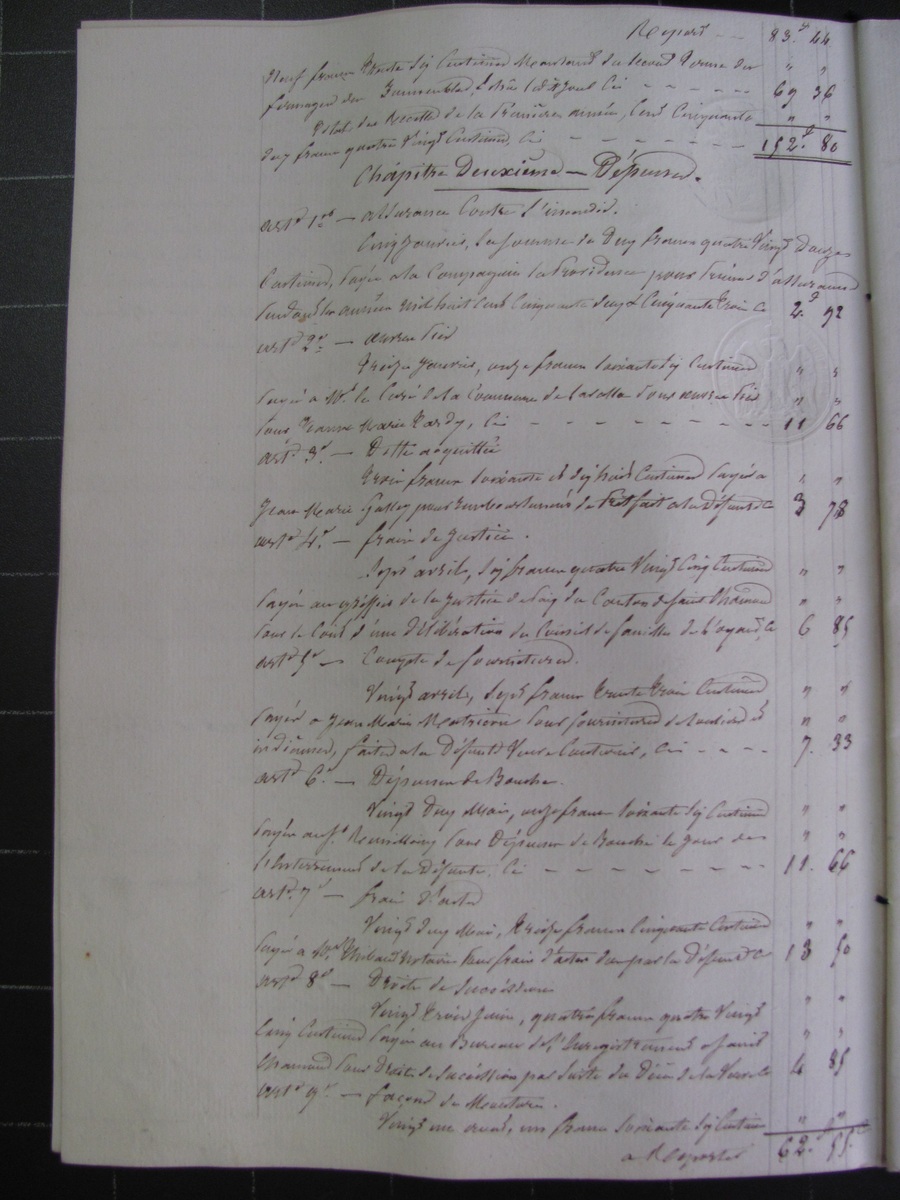 Report - - 83.f 44
Neuf francs trente six Centimes Montant du second terme des " "
fermages des Immeubles, Ci - - - - - - 69 36
Total des Recettes de la première année, Cent Cinquante " "
deux francs quatre Vingt Centimes, Ci - - - - - - 152.f 80
Chapitre Deuxième — Dépenses.
art.e 1.er — assurance Contre l'incendie.
Cinq Janvier, la somme de Deux francs quatre Vingt Douze
Centimes, payée a la Compagnie la Providence pour prime d'assurance
pendant les années mil huit Cent Cinquante deux & Cinquante trois Ci 2.f 92
art.e 2.e — œuvres Pies
Treize Janvier, onze francs soixante six Centimes " "
payés a M.r le Curé de la Commune de Lavalla pour œuvres Pies " "
pour Jeanne Marie Tardy, Ci - - - - - - - 11 66
art.e 3.e — Dette acquittée
Trois francs soixante et dix huit Centimes payés a " "
Jean Marie Galley pour Remboursement de Prêt fait a la Défunte Ci 3 78
art.e 4.e — frais de Justice.
Sept avril, six francs quatre Vingt Cinq Centimes " "
payés au greffier de la Justice de Paix du Canton de Saint Chamond " "
pour le Coût d'une Délibération du Conseil de famille de l'oyant, Ci 6 85
art.e 5.e — Compte de fournitures.
Vingt avril, Sept francs trente trois Centimes " "
payés a Jean Marie pour fournitures de et " "
indiennes, faites a la Défunte Veuve, Ci - - - - 7. 33
art.e 6.e — Dépenses de Bouche.
Vingt Deux Mai, onze francs soixante six Centimes " "
payés au S.r pour Dépenses de Bouche le Jour de " "
l'Enterrement de la Défunte, Ci - - - - - - - 11. 66
art.e 7.e — frais d'acte
Vingt deux Mai, treize francs Cinquante Centimes " "
payés a M.e Notaire pour frais d'actes dus par la Défunte Ci 13 50
art.e 8.e — Droits de succession
Vingt trois Juin, quatre francs quatre Vingt " "
Cinq Centimes payés au Bureau de l'Enregistrement a Saint " "
Chamond pour Droits de succession par suite du Décès de la Veuve Ci 4 85
art.e 9.e — façons de
Vingt un août, un franc soixante six Centimes " "
a Reporter 62.f 55.c